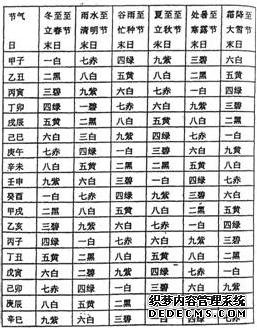 节气 冬至至 雨水至 谷雨至 夏至至 处暑至 霜降至
立春节 清明节 忙种节 立秋节 寒露节 大雪节
日 末日 末日 末日 末日 末日 末日
甲子 一白 七赤 四绿 九紫 三碧 六白
乙丑 二黑 八白 五黄 八白 二黑 五黄
丙寅 三碧 九紫 六白 七赤 一白 四绿
丁卯 四绿 一碧 七赤 六白 九紫 三碧
戊辰 五黄 二黑 八白 五黄 八白 二黑
己巳 六白 九紫 四绿 七赤 一白
庚午 七赤 四绿 一白 三碧 六白 九紫
辛未 八白 五黄 二黑 二黑 五黄 八白
壬申 九紫 六白 三碧 一白 四绿 七赤
癸酉 一白 七赤 四绿 九紫 三碧 六白
甲戌 二黑 八白 五黄 八白 二黑 五黄
乙亥 三碧 九紫 六白 七赤 一白 四绿
丙子 四绿 一白 七赤 六白 九紫 三碧
丁丑 五黄 二黑 八白 五黄 八白 二黑
戊寅 六白 三碧 九紫 四绿 七赤 一白
己卯 七赤 四绿 一白 三碧 六白 九紫
庚辰 八白 五黄 二黑
辛巳 九紫 六白 三碧 一白 四绿 七赤
织梦内容管理系统
DEDECMS.COM